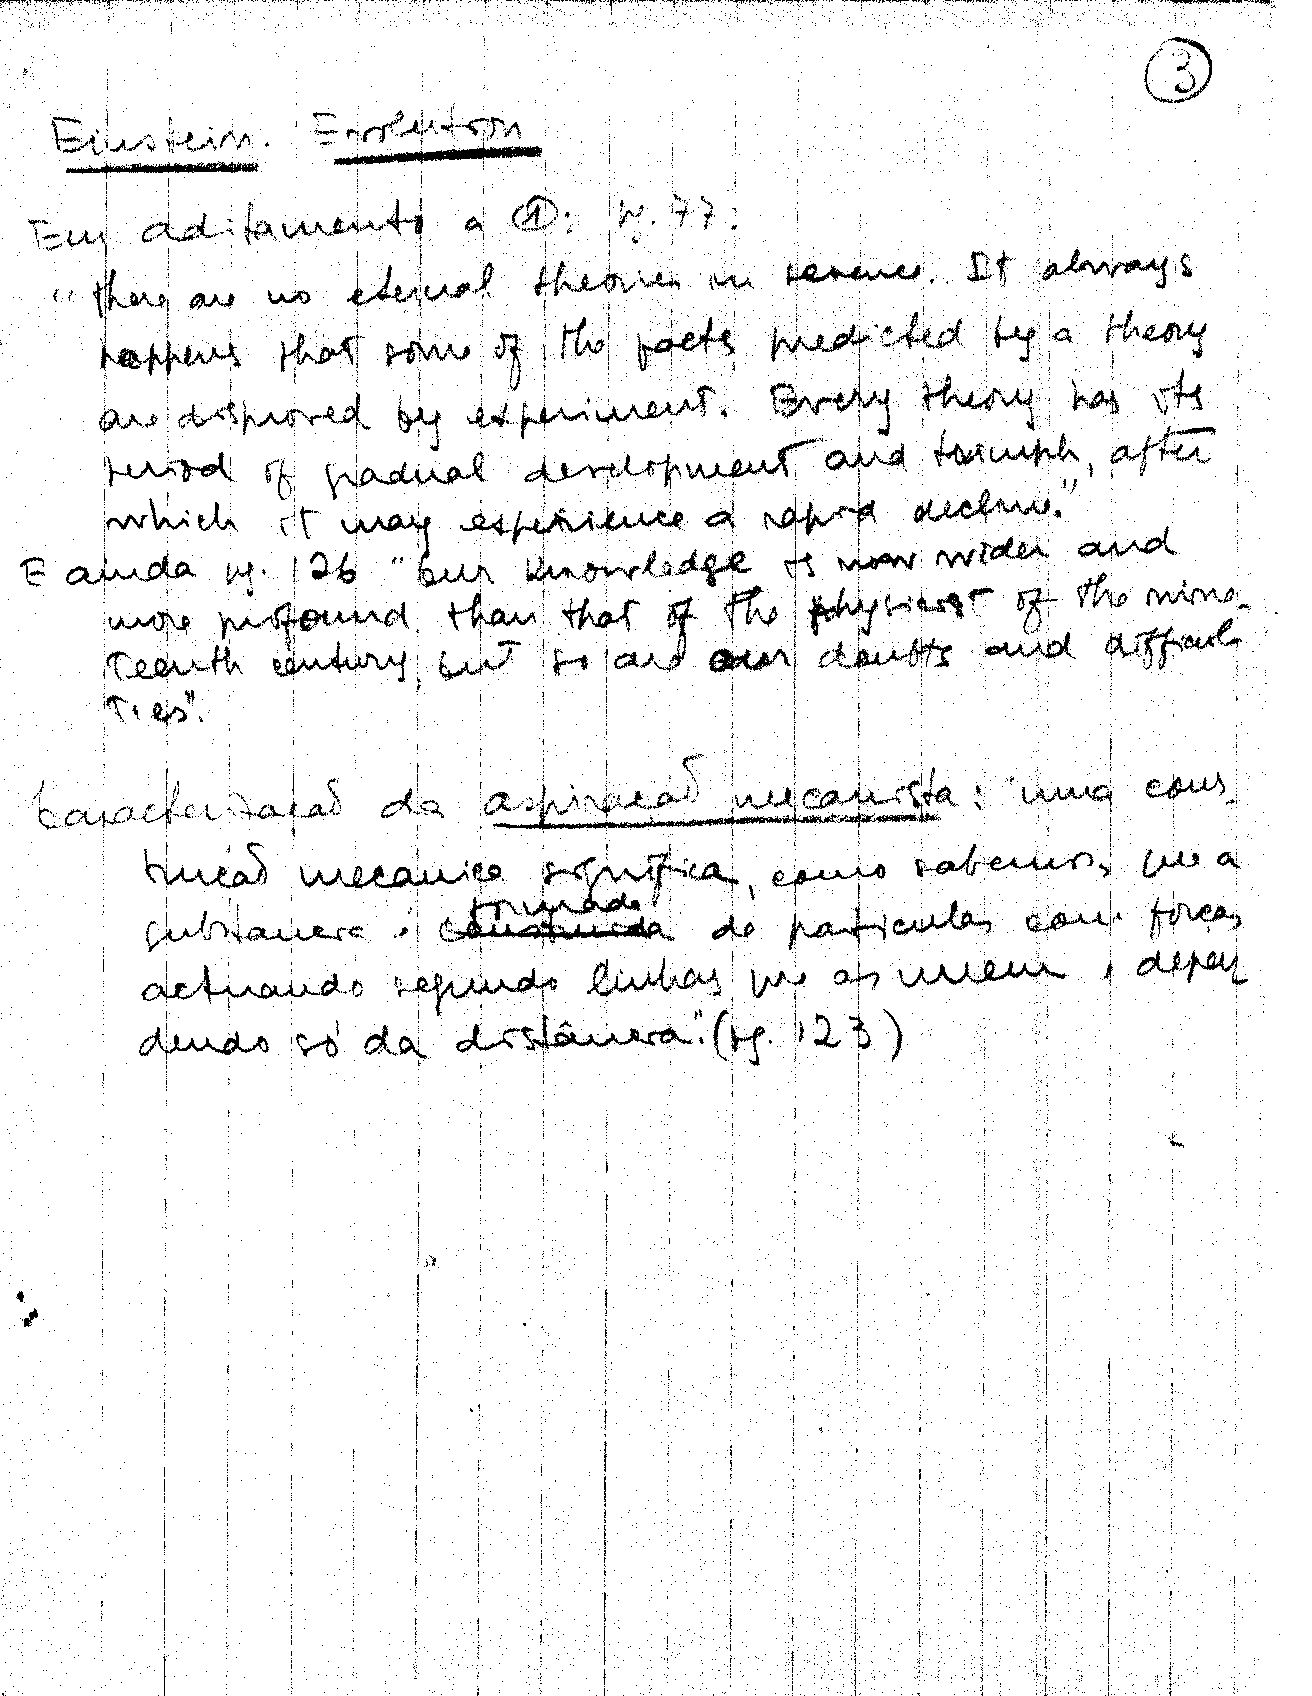 3
Einstein. Evolution
Em aditamento a ①: pg. 77:
"there are no eternal theories in science. It always
happens that some of the facts predicted by a theory
are disproved by experiment. Every theory has its
period of gradual development and triumph, after
which it may experience a rapid decline."
E ainda pg. 126 "Our knowledge is now wider and
more profound than that of the physicist of the nine-
teenth century, but so are our doubts and difficul-
ties".
Caracterização da aspiração mecanista: "uma cons-
trução mecânica significa, como sabemos, que a
formada
substancia é construida de particulas com forças
actuando segundo linhas que as unem e depen
dendo só da distância". (pg. 123)